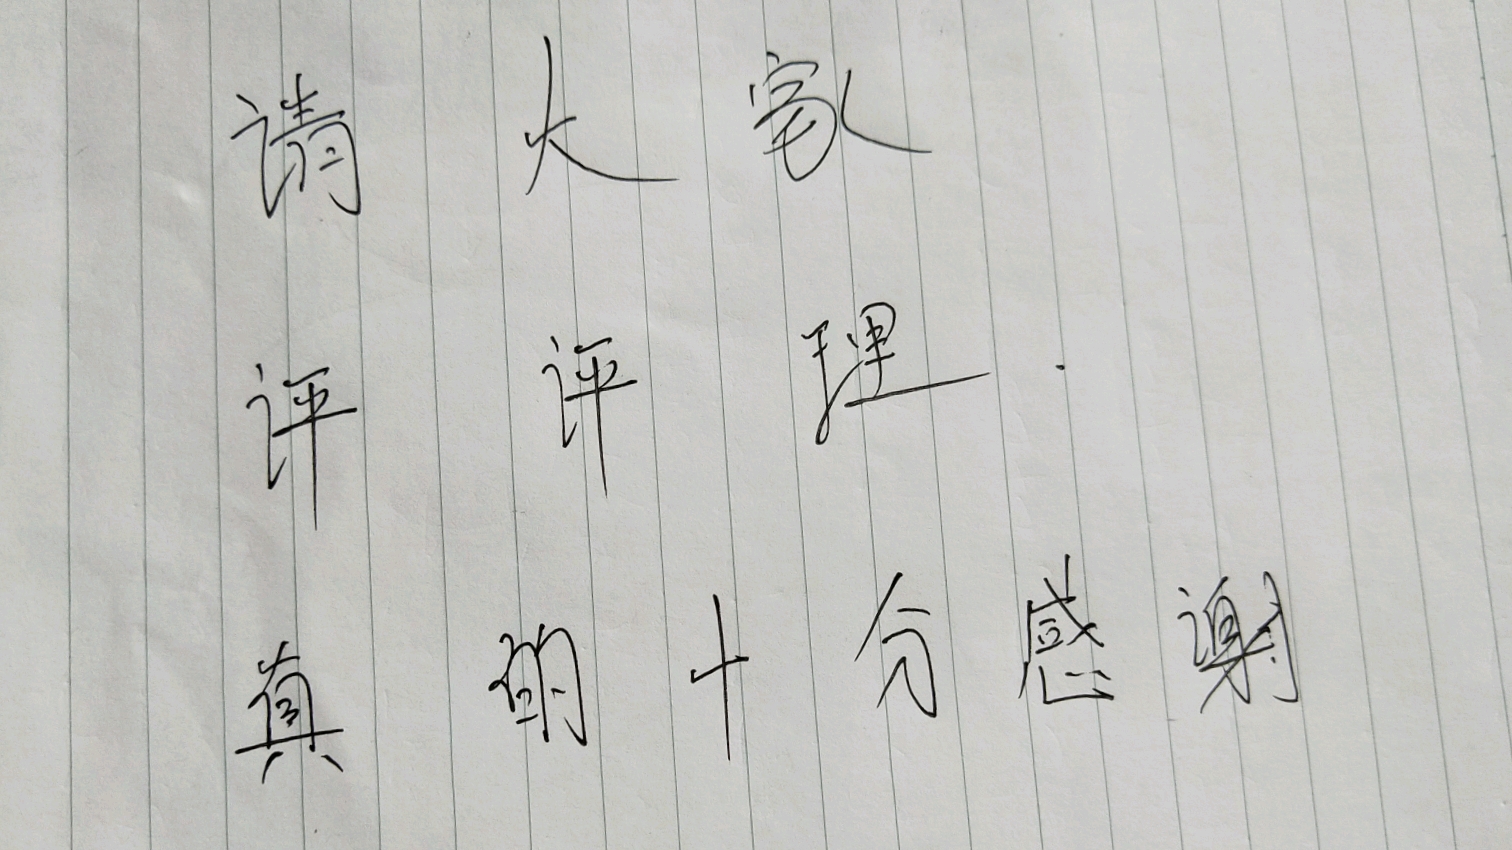 请大家
评评理.
真的十分感谢